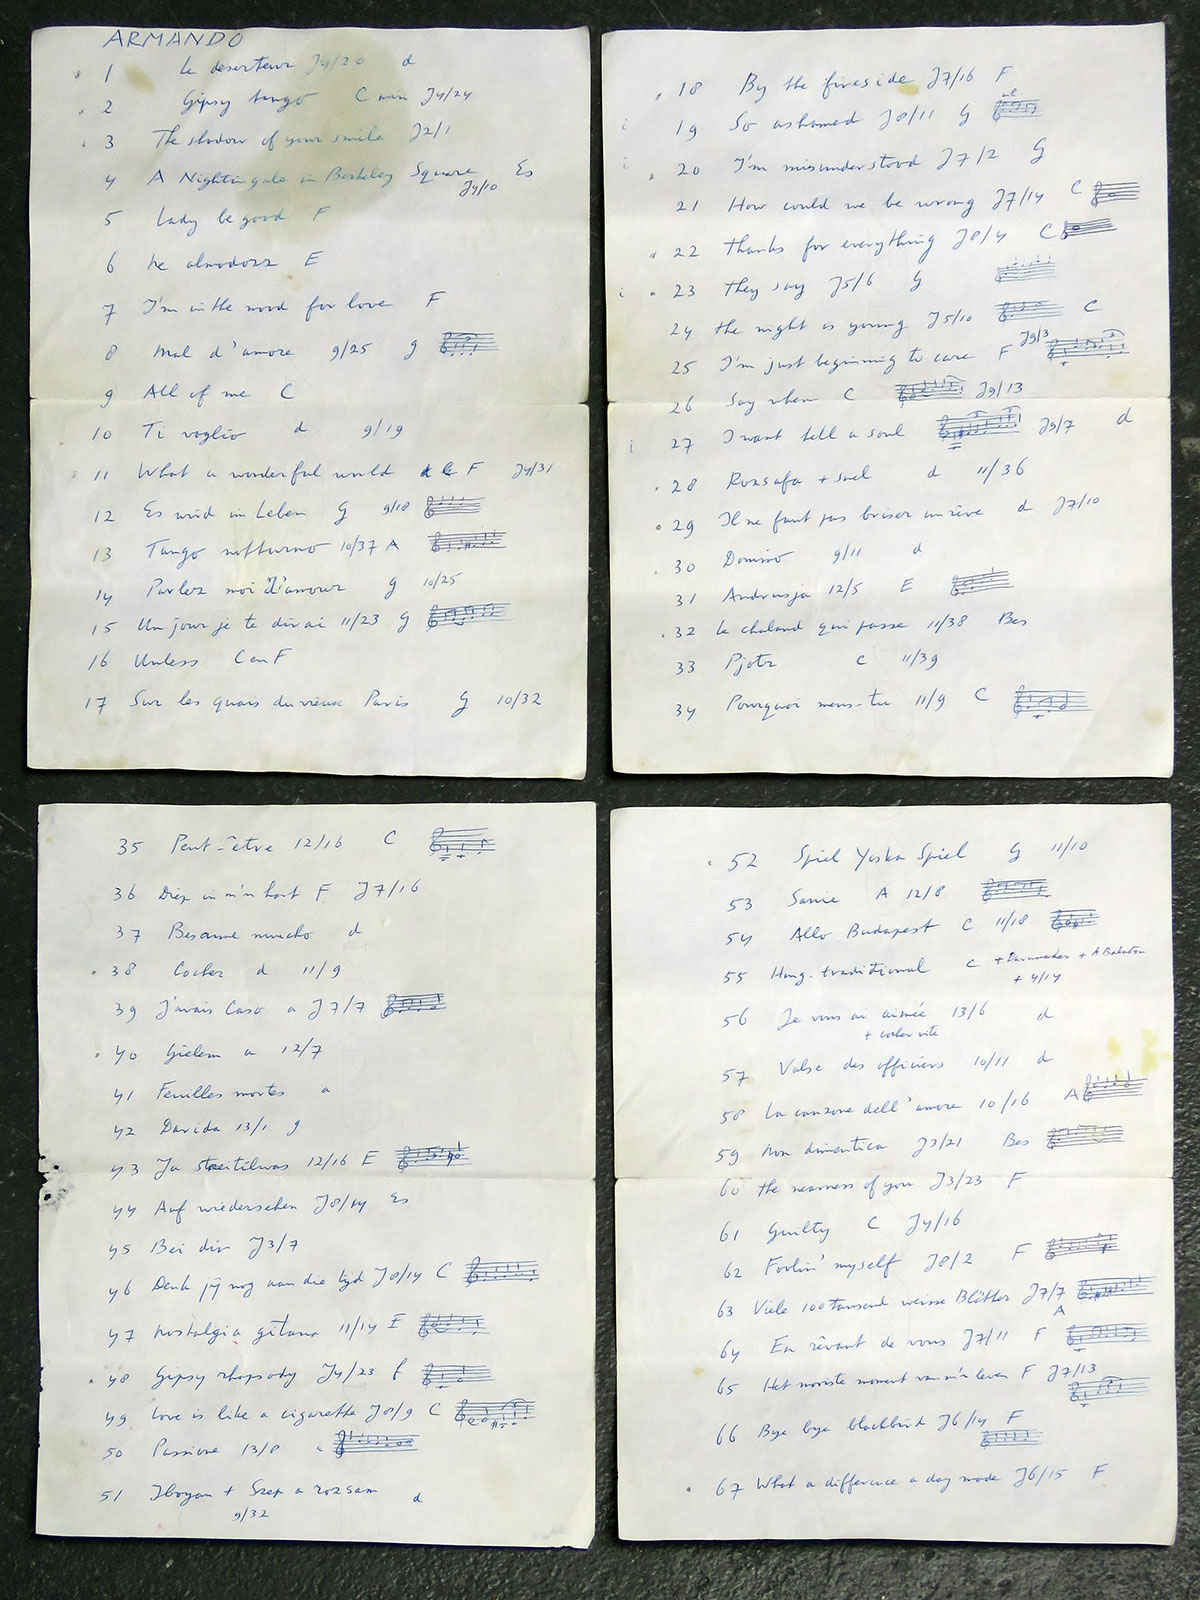 ARMANDO
1 Le deserteur J4/20 d
2 Gipsy tango C min J4/24
3 The shadow of your smile J2/1
4 A Nightingale in Berkeley Square Es
J9/10
5 Lady be good F
6 E
7 I'm in the mood for love F
8 Mal d'amore 9/25 g
9 All of me C
10 Ti voglio d 9/19
11 What a wonderful world F J4/31
12 Es wird im Leben G 9/18
13 Tango notturno 10/37 A
14 Parlez moi d'amour g 10/25
15 Un jour je te dirai 11/23 G
16 Unless C en F
17 Sur les quais du vieux Paris G 10/32
18 By the fireside J7/16 F
19 So ashamed J8/11 G
20 I'm misunderstood J7/2 G
21 How could we be wrong J7/14 C
22 Thanks for everything J8/4 C
23 They say J5/6 G
24 The night is young J5/10 C
25 I'm just beginning to care F J9/3
26 Say when C J9/13
27 I want tell a soul J9/7 d
28 Rozsafa + snel d 11/36
29 Il ne faut pas briser un rêve d J7/10
30 Domino 9/11 d
31 Andrusja 12/5 E
32 Le chaland qui passe 11/38 Bes
33 Pjotr c 11/39
34 Pourquoi mens-tu 11/9 C
35 Peut-être 12/16 C
36 Diep in m'n hart F J7/16
37 Besame mucho d
38 Cocher d 11/9
39 J'avais a J7/7
40 Gielem a 12/7
41 Feuilles mortes a
42 Davida 13/1 g
43 Ja 12/16 E
44 Auf wiedersehen J8/14 Es
45 Bei dir J3/7
46 Denk jij nog aan die tijd J8/14 C
47 Nostalgia gitana 11/14 E
48 Gipsy rhapsody J4/23 f
49 Love is like a cigarette J8/9 C
50 Passione 13/8 a
51 Ibolyam + Szep a rozsam d
9/32
52 Spiel Yoska Spiel G 11/10
53 Sanie A 12/8
54 Allo Budapest C 11/18
55 Hong. traditional c + + A Balaton
+ 4/14
56 Je vous ai aimée 13/6 d
+ cocher vite
57 Valse des officiers 10/11 d
58 La canzone dell'amore 10/16 A
59 Non dimentica J3/21 Bes
60 The nearness of you J3/23 F
61 Guilty C J4/16
62 Foolin' myself J8/2 F
63 Viele 100 tausend weisse Blätter J7/7
A
64 En rêvant de vous J7/11 F
65 Het mooiste moment van m'n leven F J7/13
66 Bye bye blackbird J6/14 F
67 What a difference a day made J6/15 F